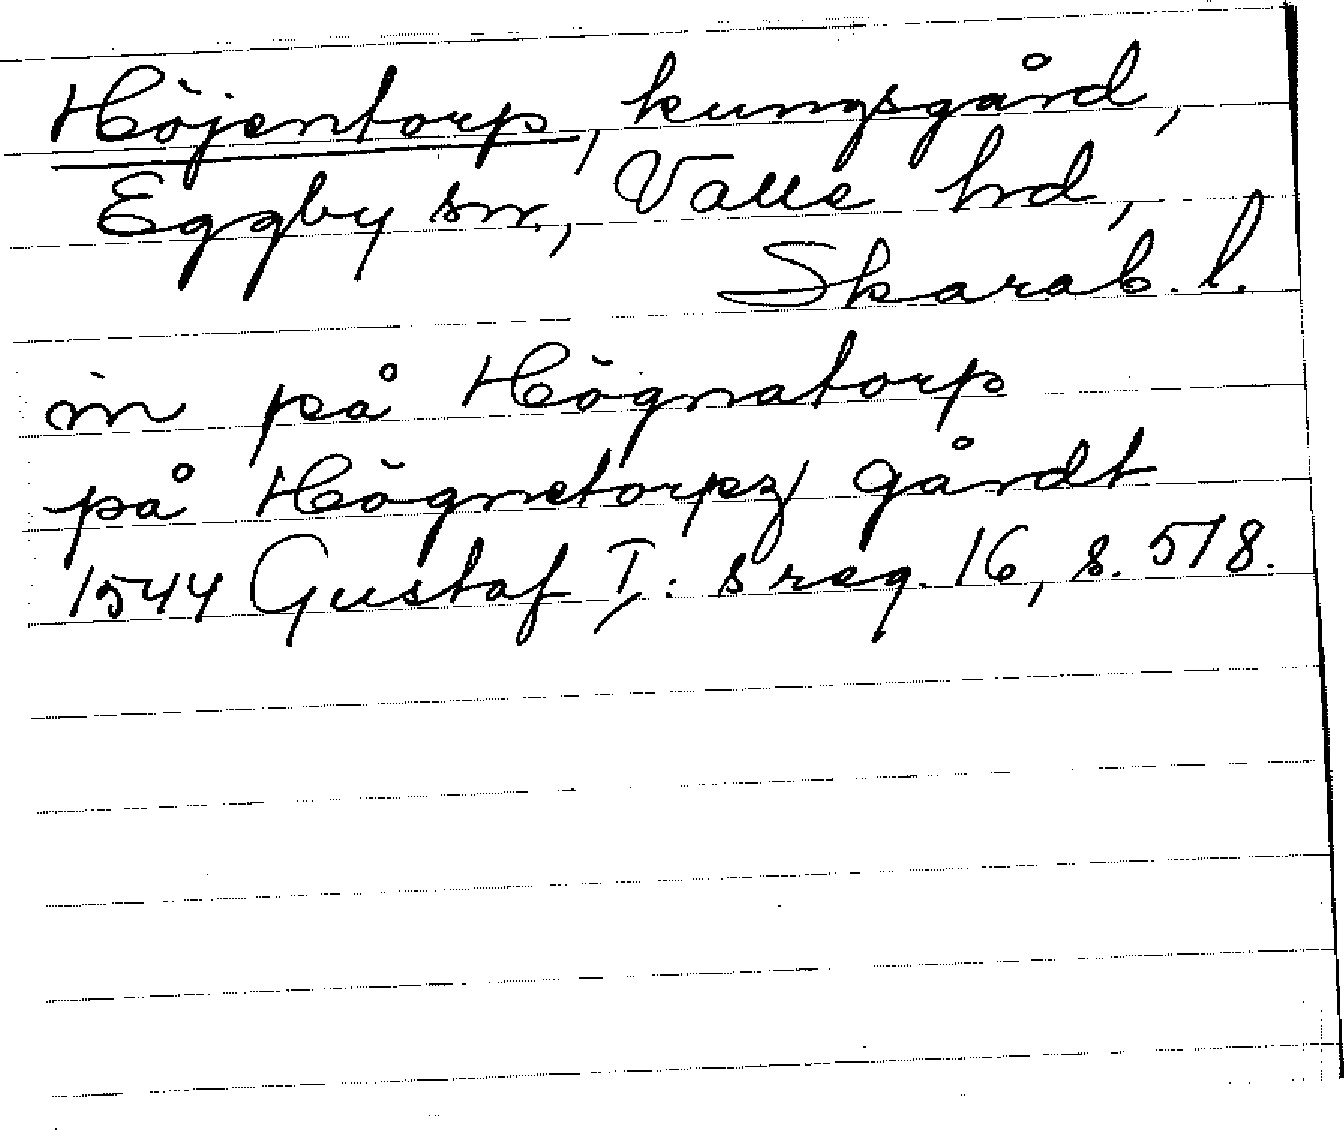 Höjentorp, kungsgård,
Eggby sn, Valle hd,
Skarab. l.
in på Högnatorp
på Högnetorpz gårdt
1544 Gustaf I:s reg. 16, s. 518.